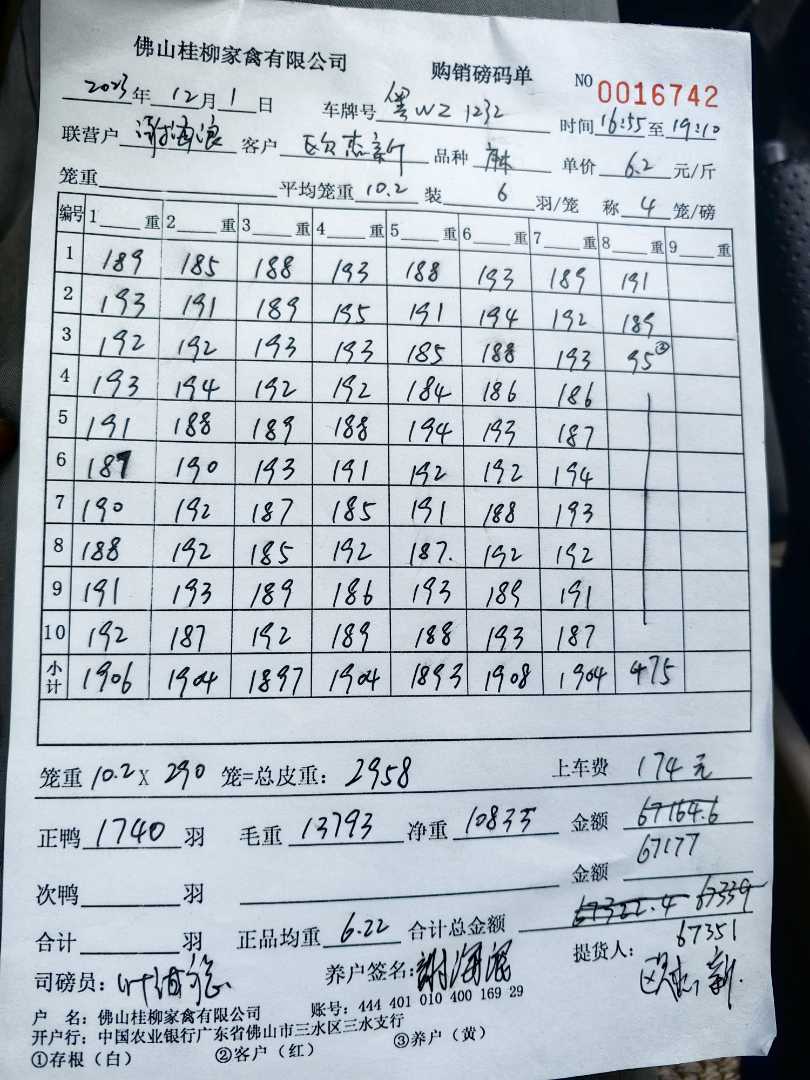 佛山桂柳家禽有限公司 购销磅码单 NO 0016742
2023年12月1日 车牌号 粤WZ 1232 时间 16:55 至 19:10
联营户 谢海浪 客户 欧杰新 品种 麻 单价 6.2 元/斤
笼重 平均笼重 10.2 装 6 羽/笼 称 4 笼/磅
编号 1 重 2 重 3 重 4 重 5 重 6 重 7 重 8 重 9 重
1 189 185 188 193 188 193 189 191
2 193 191 189 195 191 194 192 189
3 192 192 193 193 185 188 193 95②
4 193 194 192 192 184 186 186
5 191 188 189 188 194 193 187
6 187 190 193 191 192 192 194
7 190 192 187 185 191 188 193
8 188 192 185 192 187. 192 192
9 191 193 189 186 193 189 191
10 192 187 192 189 188 193 187
小计 1906 1904 1897 1904 1893 1908 1904 475
笼重 10.2 X 290 笼=总皮重: 2958 上车费 174元
正鸭 1740 羽 毛重 13793 净重 10835 金额 67164.6
67177
次鸭 羽 金额
67322.4 67339
合计 羽 正品均重 6.22 合计总金额 67351
司磅员: 叶 养户签名: 谢海浪 提货人: 欧杰新
户 名: 佛山桂柳家禽有限公司 账号: 444 401 010 400 169 29
开户行: 中国农业银行广东省佛山市三水区三水支行
①存根(白) ②客户(红) ③养户(黄)